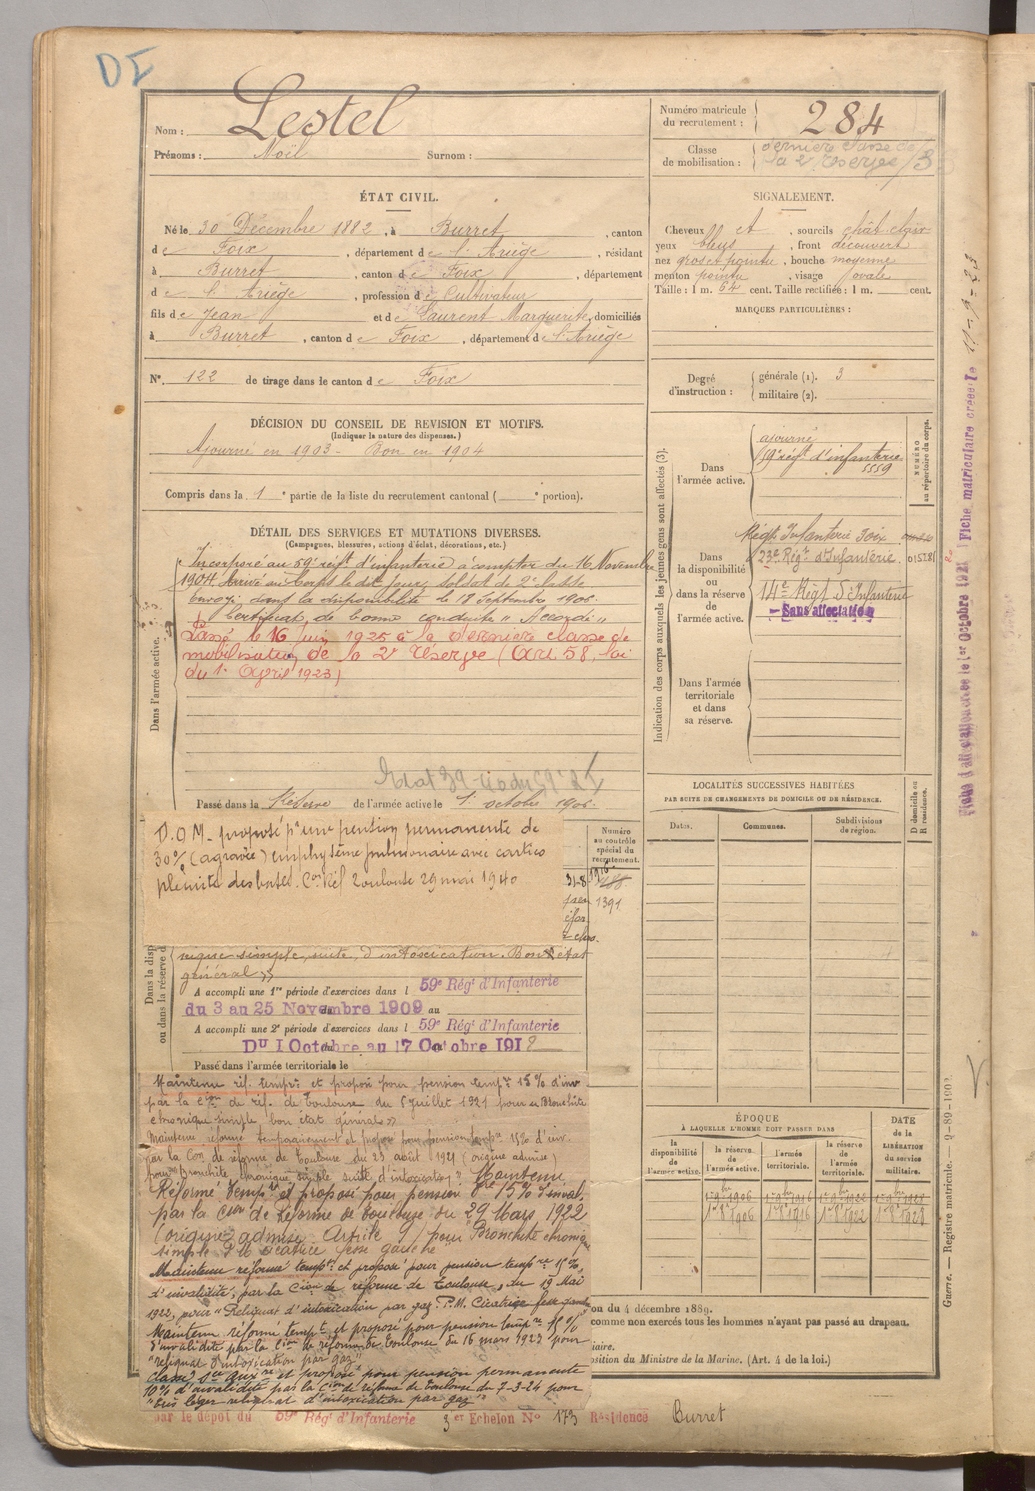 DI
Nom : Lestel
Prénoms : Noël Surnom :
ÉTAT CIVIL.
Né le 30 Décembre 1882, à Burret, canton
de Foix, département de l'Ariège, résidant
à Burret, canton de Foix, département
de l'Ariège, profession de Cultivateur
fils de Jean et de Laurent Marguerite, domiciliés
à Burret, canton de Foix, département de l'Ariège
N° 122 de tirage dans le canton de Foix
DÉCISION DU CONSEIL DE REVISION ET MOTIFS.
(Indiquer la nature des dispenses.)
Ajourné en 1903 - Bon en 1904
Compris dans la 1e partie de la liste du recrutement cantonal ( e portion).
DÉTAIL DES SERVICES ET MUTATIONS DIVERSES.
(Campagnes, blessures, actions d'éclat, décorations, etc.)
Incorporé au 59e régt d'infanterie à compter du 16 Novembre
1904. Arrivé au Corps le dit jour, soldat de 2e classe
Envoyé dans la disponibilité le 18 Septembre 1906.
Certificat de bonne conduite "Accordé"
Passé le 16 Juin 1925 à la dernière classe de
mobilisation de la 2e réserve (Art 58, loi
du 1er Avril 1923)
Dans l'armée active.
Passé dans la Réserve de l'armée active le 1er octobre 1906.
D.O.M. proposé pr une pension permanente de
30% (aggravée) emphysème pulmonaire avec
Con Réf Toulouse 29 mai 1940
nique simple, suite d'intoxication. Bon état
général »
A accompli une 1re période d'exercices dans l 59e Régt d'Infanterie
du 3 au 25 Novembre 1909 au
A accompli une 2e période d'exercices dans l 59e Régt d'Infanterie
DU 1 Octobre au 17 Octobre 1912
Passé dans l'armée territoriale le
Maintenu réf. tempre et proposé pour pension tempre 15% d'inv
par la Cion de réf. de Toulouse du 5 juillet 1921 pour "Bronchite
chronique simple bon état général »
Maintenu réformé temporairement et proposé pour pension tempre 15% d'inv.
par la Con de réforme de Toulouse du 23 août 1921 (origine admise)
pour "bronchite chronique simple suite d'intoxication". Maintenu
Réformé tempre et proposé pour pension tre 15% d'inval.
par la Cson de Réforme de Toulouse du 29 Mars 1922
(origine admise Article ) pour Bronchite chronique
simple cicatrice fesse gauche
Maintenu réformé tempre et proposé pour pension tempre 15%
d'invalidité, par la Cion de réforme de Toulouse, du 19 Mai
1922, pour "Reliquat d'intoxication par gaz. P.M. Cicatrice fesse gauche
Maintenu réformé tempt et proposé pour pension tempre %
d'invalidité par la Cion de réforme de Toulouse du 16 mars 1923 pour
"reliquat d'intoxication par gaz"
Classé Sce auxre et proposé pour pension permanente
10% d'invalidité par la Cion de réforme de Toulouse du 7-3-24 pour
"très léger reliquat d'intoxication par gaz"
par le dépôt du 59e Régt d'Infanterie 3er Echelon N° 173 Résidence Burret
Numéro matricule du recrutement : 284
Classe de mobilisation : dernière classe de
la 2e réserve /3
SIGNALEMENT.
Cheveux et, sourcils chât clair
yeux bleus, front découvert
nez gros et pointu, bouche moyenne
menton pointu, visage ovale
Taille : 1 m. 64 cent. Taille rectifiée : 1 m. cent.
MARQUES PARTICULIÈRES :
Degré d'instruction : générale (1). 3
militaire (2).
Indication des corps auxquels les jeunes gens sont affectés (3).
NUMÉRO au répertoire du corps.
Dans l'armée active.
ajourné
59e régt d'infanterie
5559
Dans la disponibilité ou dans la réserve de l'armée active.
Régt Infanterie Foix
23e Régt d'Infanterie. 01528
14e Régt d'Infanterie
Sans affectation
Dans l'armée territoriale et dans sa réserve.
LOCALITÉS SUCCESSIVES HABITÉES
PAR SUITE DE CHANGEMENTS DE DOMICILE OU DE RÉSIDENCE.
Dates. Communes. Subdivisions de région. D domicile ou R résidence.
Numéro au contrôle spécial du recrutement.
1391
ÉPOQUE
À LAQUELLE L'HOMME DOIT PASSER DANS
la disponibilité de l'armée active. la réserve de l'armée active. l'armée territoriale. la réserve de l'armée territoriale. DATE de la LIBÉRATION du service militaire.
1er 8bre 1906 1er 8bre 1916 1er 8bre 1922 1er 8bre 1928
on du 4 décembre 1889.
comme non exercés tous les hommes n'ayant pas passé au drapeau.
iaire.
sition du Ministre de la Marine. (Art. 4 de la loi.)
Fiche matriculaire créée le 11-9-23
Guerre. — Registre matricule. — 9-89-1902